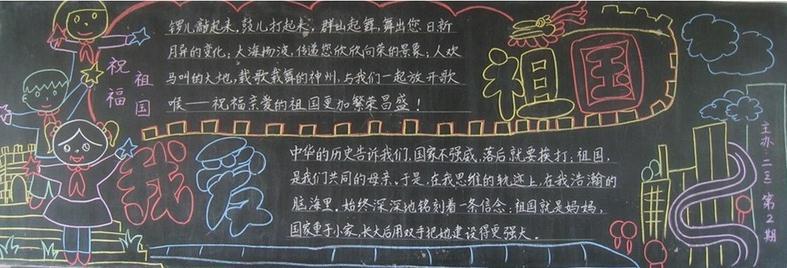 祝福
祖国
锣儿敲起来，鼓儿打起来，群山起舞，舞出您日新
月异的变化；大海扬波，传递您欣欣向荣的景象；人欢
马叫的大地，载歌载舞的神州，与我们一起放开歌
喉——祝福亲爱的祖国更加繁荣昌盛！
祖国
我爱
中华的历史告诉我们，国家不强盛，落后就要挨打；祖国，
是我们共同的母亲，于是，在我思维的轨迹上，在我浩瀚的
脑海里，始终深深地铭刻着一条信念：祖国就是妈妈，
国家重于小家，长大后用双手把她建设得更强大。
主办二(三)第2期